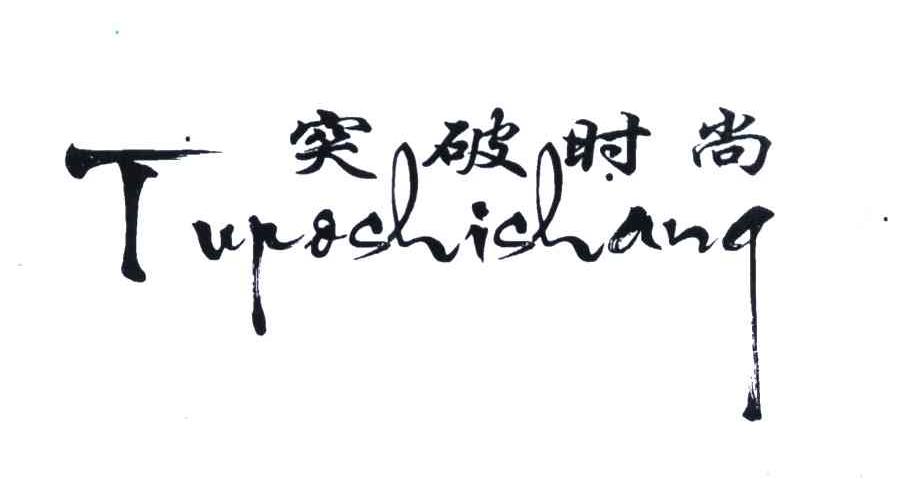 突破时尚
Tuposhishang